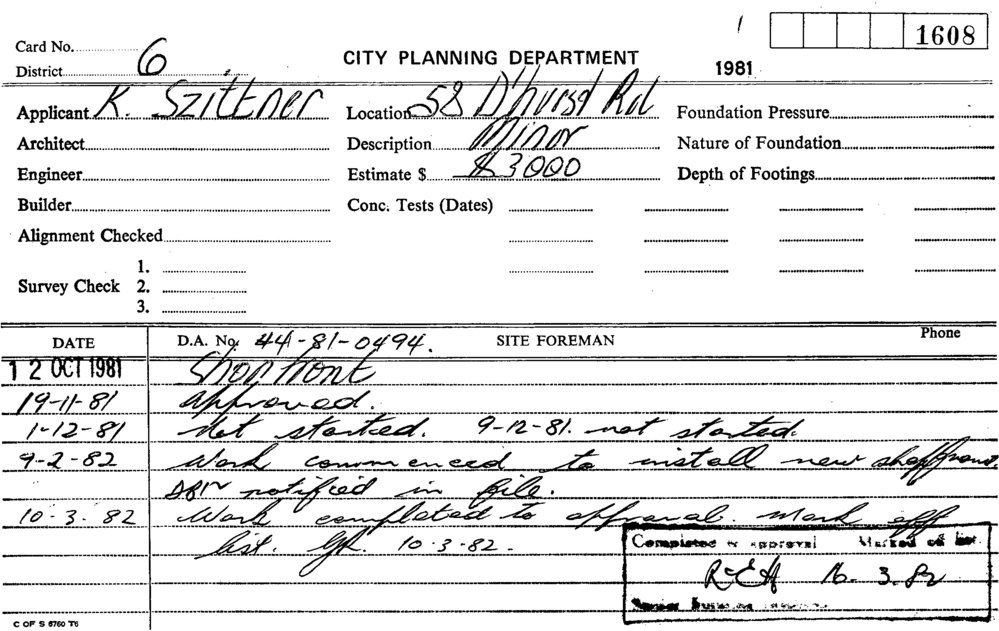 1608
Card No. 6
CITY PLANNING DEPARTMENT
District
1981
Applicant K. Szittner Location 58 D'hurst Rd Foundation Pressure
Architect Description Minor Nature of Foundation
Engineer Estimate $ $3000 Depth of Footings
Builder Conc. Tests (Dates)
Alignment Checked
1.
Survey Check 2.
3.
DATE D.A. No. 44-81-0494. SITE FOREMAN Phone
12 OCT 1981 Shopfront
19-11-81 approved.
1-12-81 Not started. 9-12-81. not started.
9-2-82 Work commenced to install new shopfront.
notified in file.
10-3-82 Work completed to approval. Mark off
list. 10-3-82.
Completed to approval Marked off list
16. 3. 82
Senior Building
C OF S 6760 T6